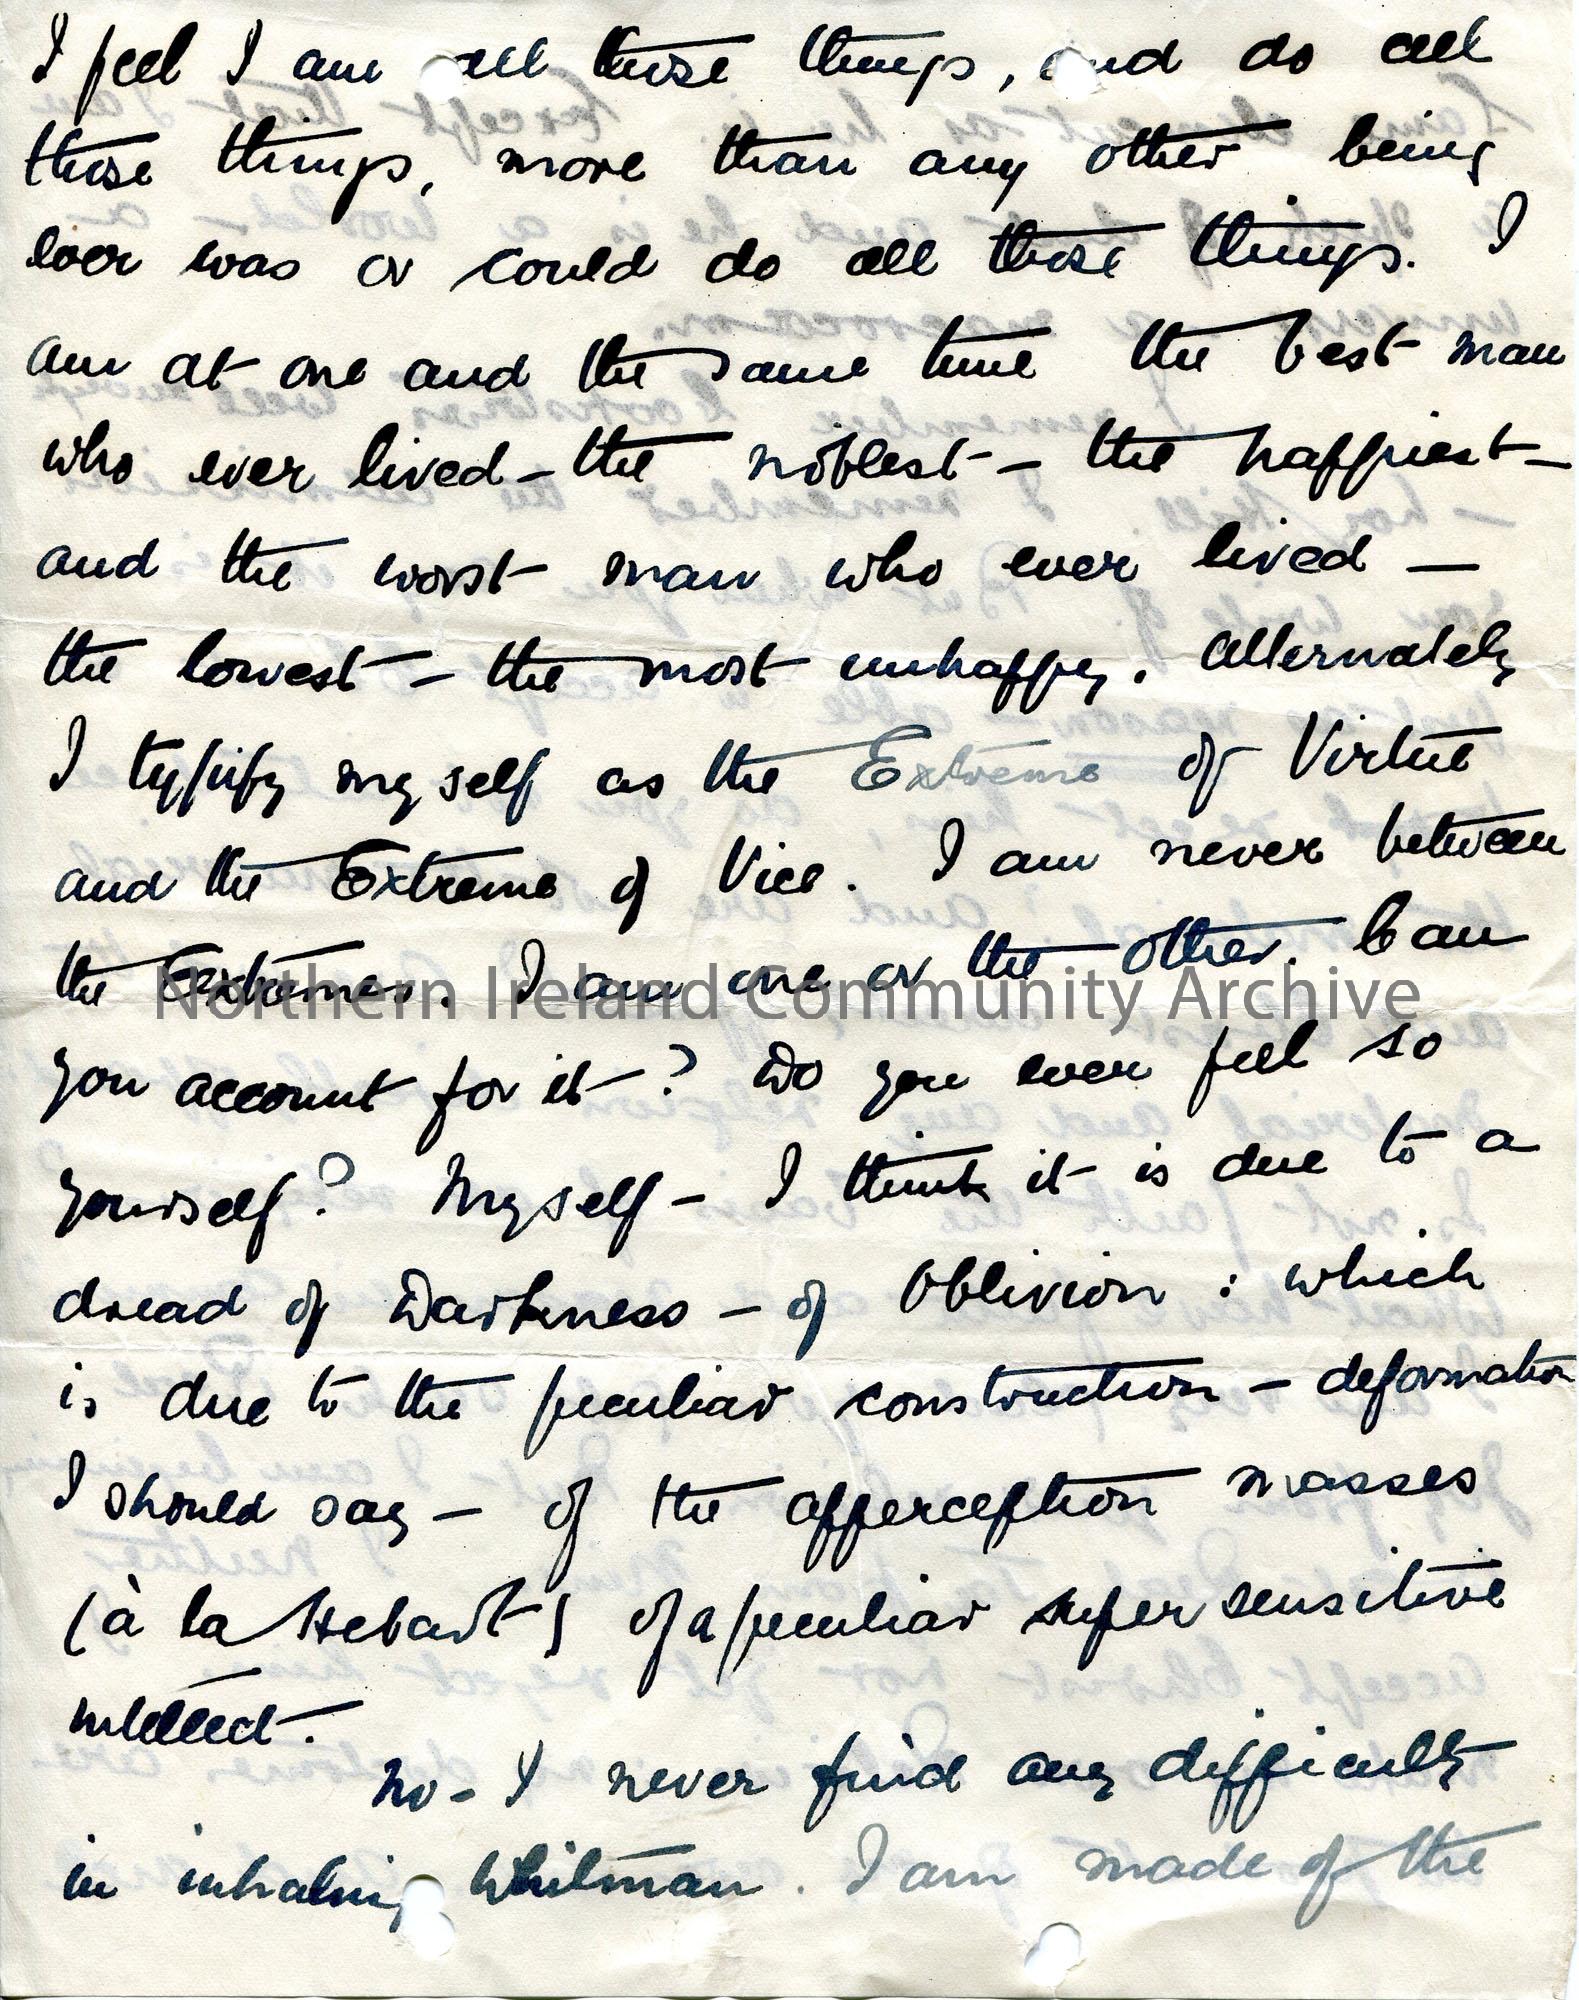 I feel I am all those things, and do all
those things, more than any other being
ever was or could do all those things. I
am at one and the same time the best man
who ever lived – the noblest – the happiest –
and the worst man who ever lived –
the lowest – the most unhappy. Alternately
I typify myself as the Extreme of Virtue
and the Extreme of Vice. I am never between
the Extremes. I am one or the other. Can
Northern Ireland Community Archive
you account for it? Do you ever feel so
yourself? Myself – I think it is due to a
dread of Darkness – of Oblivion : which
is due to the peculiar construction – deformation
I should say – of the apperception masses
(à la Hebart) of a peculiar super sensitive
intellect.
No – I never find any difficulty
in inhaling Whitman. I am made of the